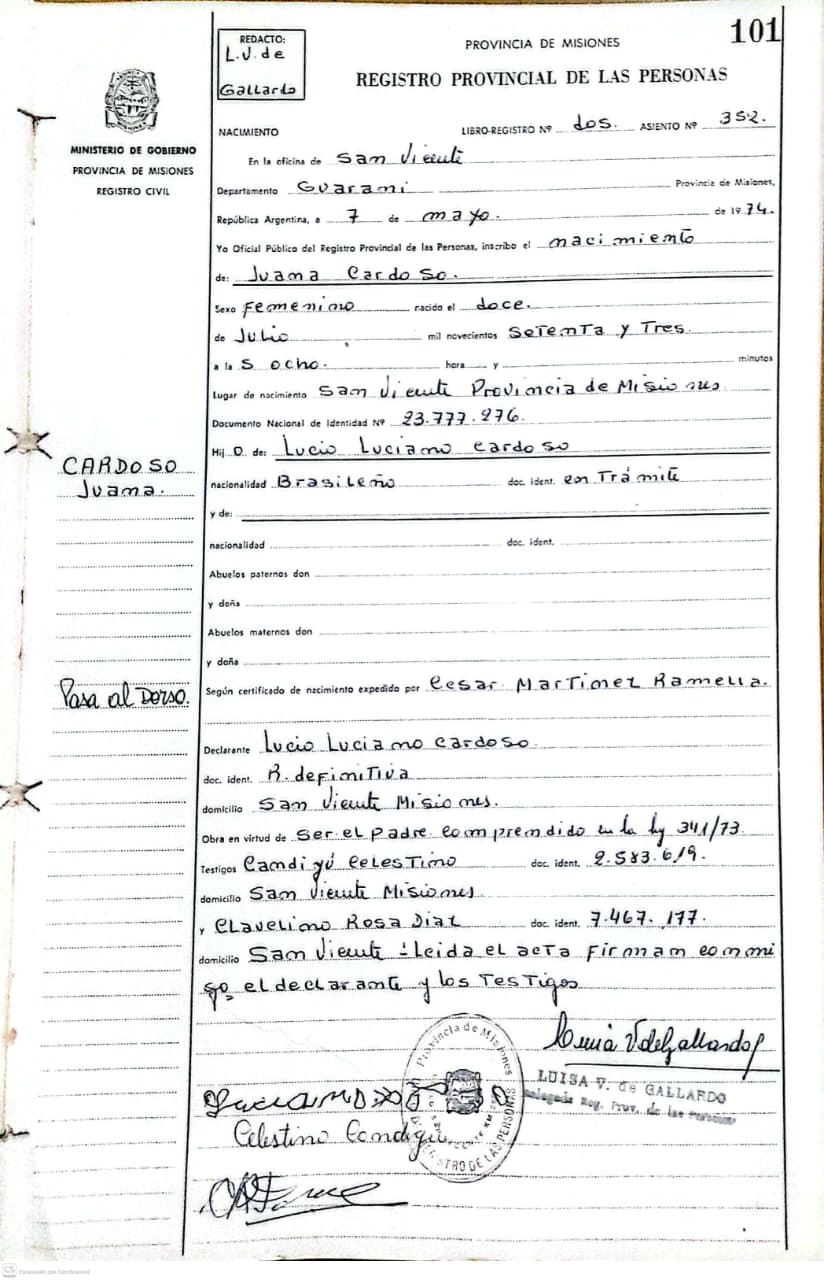 101
REDACTO:
L.V. de
Gallardo
PROVINCIA DE MISIONES
REGISTRO PROVINCIAL DE LAS PERSONAS
MINISTERIO DE GOBIERNO
PROVINCIA DE MISIONES
REGISTRO CIVIL
NACIMIENTO LIBRO-REGISTRO Nº dos. ASIENTO Nº 352.
En la oficina de San Vicente
Departamento Guarani Provincia de Misiones,
República Argentina, a 7 de mayo. de 1974.
Yo Oficial Público del Registro Provincial de las Personas, inscribo el nacimiento
de: Juana Cardoso.
Sexo femenino nacido el doce.
de Julio mil novecientos Setenta y Tres.
a la S ocho. hora y minutos
Lugar de nacimiento San Vicente Provincia de Misiones
Documento Nacional de Identidad Nº 23.777.276.
Hij O. de: Lucio Luciano Cardoso
CARDOSO
Juana.
nacionalidad Brasileño doc. ident. en Trámite
y de:
nacionalidad doc. ident.
Abuelos paternos don
y doña
Abuelos maternos don
y doña
Pasa al Dorso.
Según certificado de nacimiento expedido por Cesar Martinez Ramella.
Declarante Lucio Luciano Cardoso.
doc. ident. R. definitiva
domicilio San Vicente Misiones.
Obra en virtud de Ser el Padre. Comprendido en la ly 341/73.
Testigos Candigú Celestino doc. ident. 2.583.619.
domicilio San Vicente Misiones
y Clavelino Rosa Diaz doc. ident. 7.467.177.
domicilio San Vicente - Leida el acta firman conmi
go, el declarante y los Testigos
LUISA V. de GALLARDO
Delegada Reg. Prov. de las Personas
Provincia de Misiones
REGISTRO DE LAS PERSONAS
Celestino Candigu
CS Escaneado con CamScanner